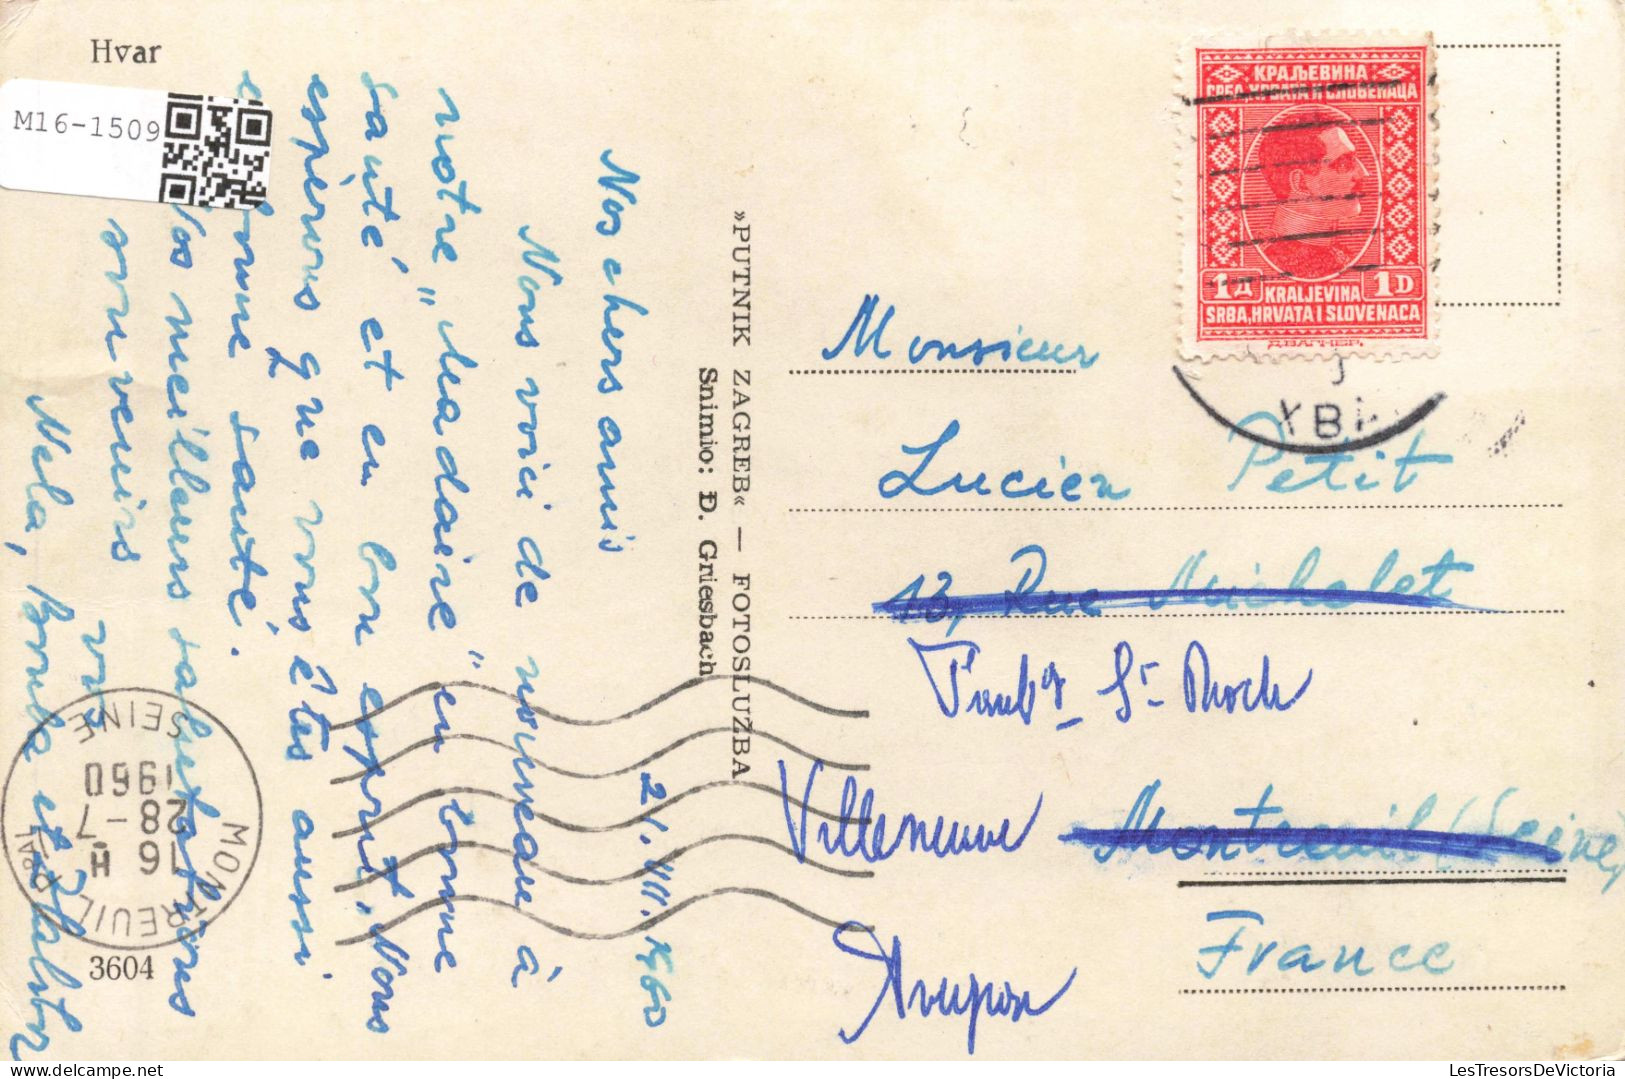 Hvar
M16-1509
21.VII.1960
Nos chers amis
Nous voici de nouveau à
notre "madaire" en bonne
santé et en bon esprit. Nous
espérons que vous êtes aussi
en bonne santé.
Nos meilleurs salutations
vos
souvenirs
Nela, Bonda et
3604
MONTREUIL PPAL
16 H
28-7
1960
SEINE
»PUTNIK ZAGREB« — FOTOSLUŽBA
Snimio: Đ. Griesbach
КРАЉЕВИНА
СРБА, ХРВАТА И СЛОВЕНАЦА
1Д
1D
KRALJEVINA
SRBA, HRVATA I SLOVENACA
Д.ВАГНЕР.
Monsieur
Lucien Petit
13, Rue Michelet
Faubg St-Roch
Villeneuve
Montreuil (Seine)
France